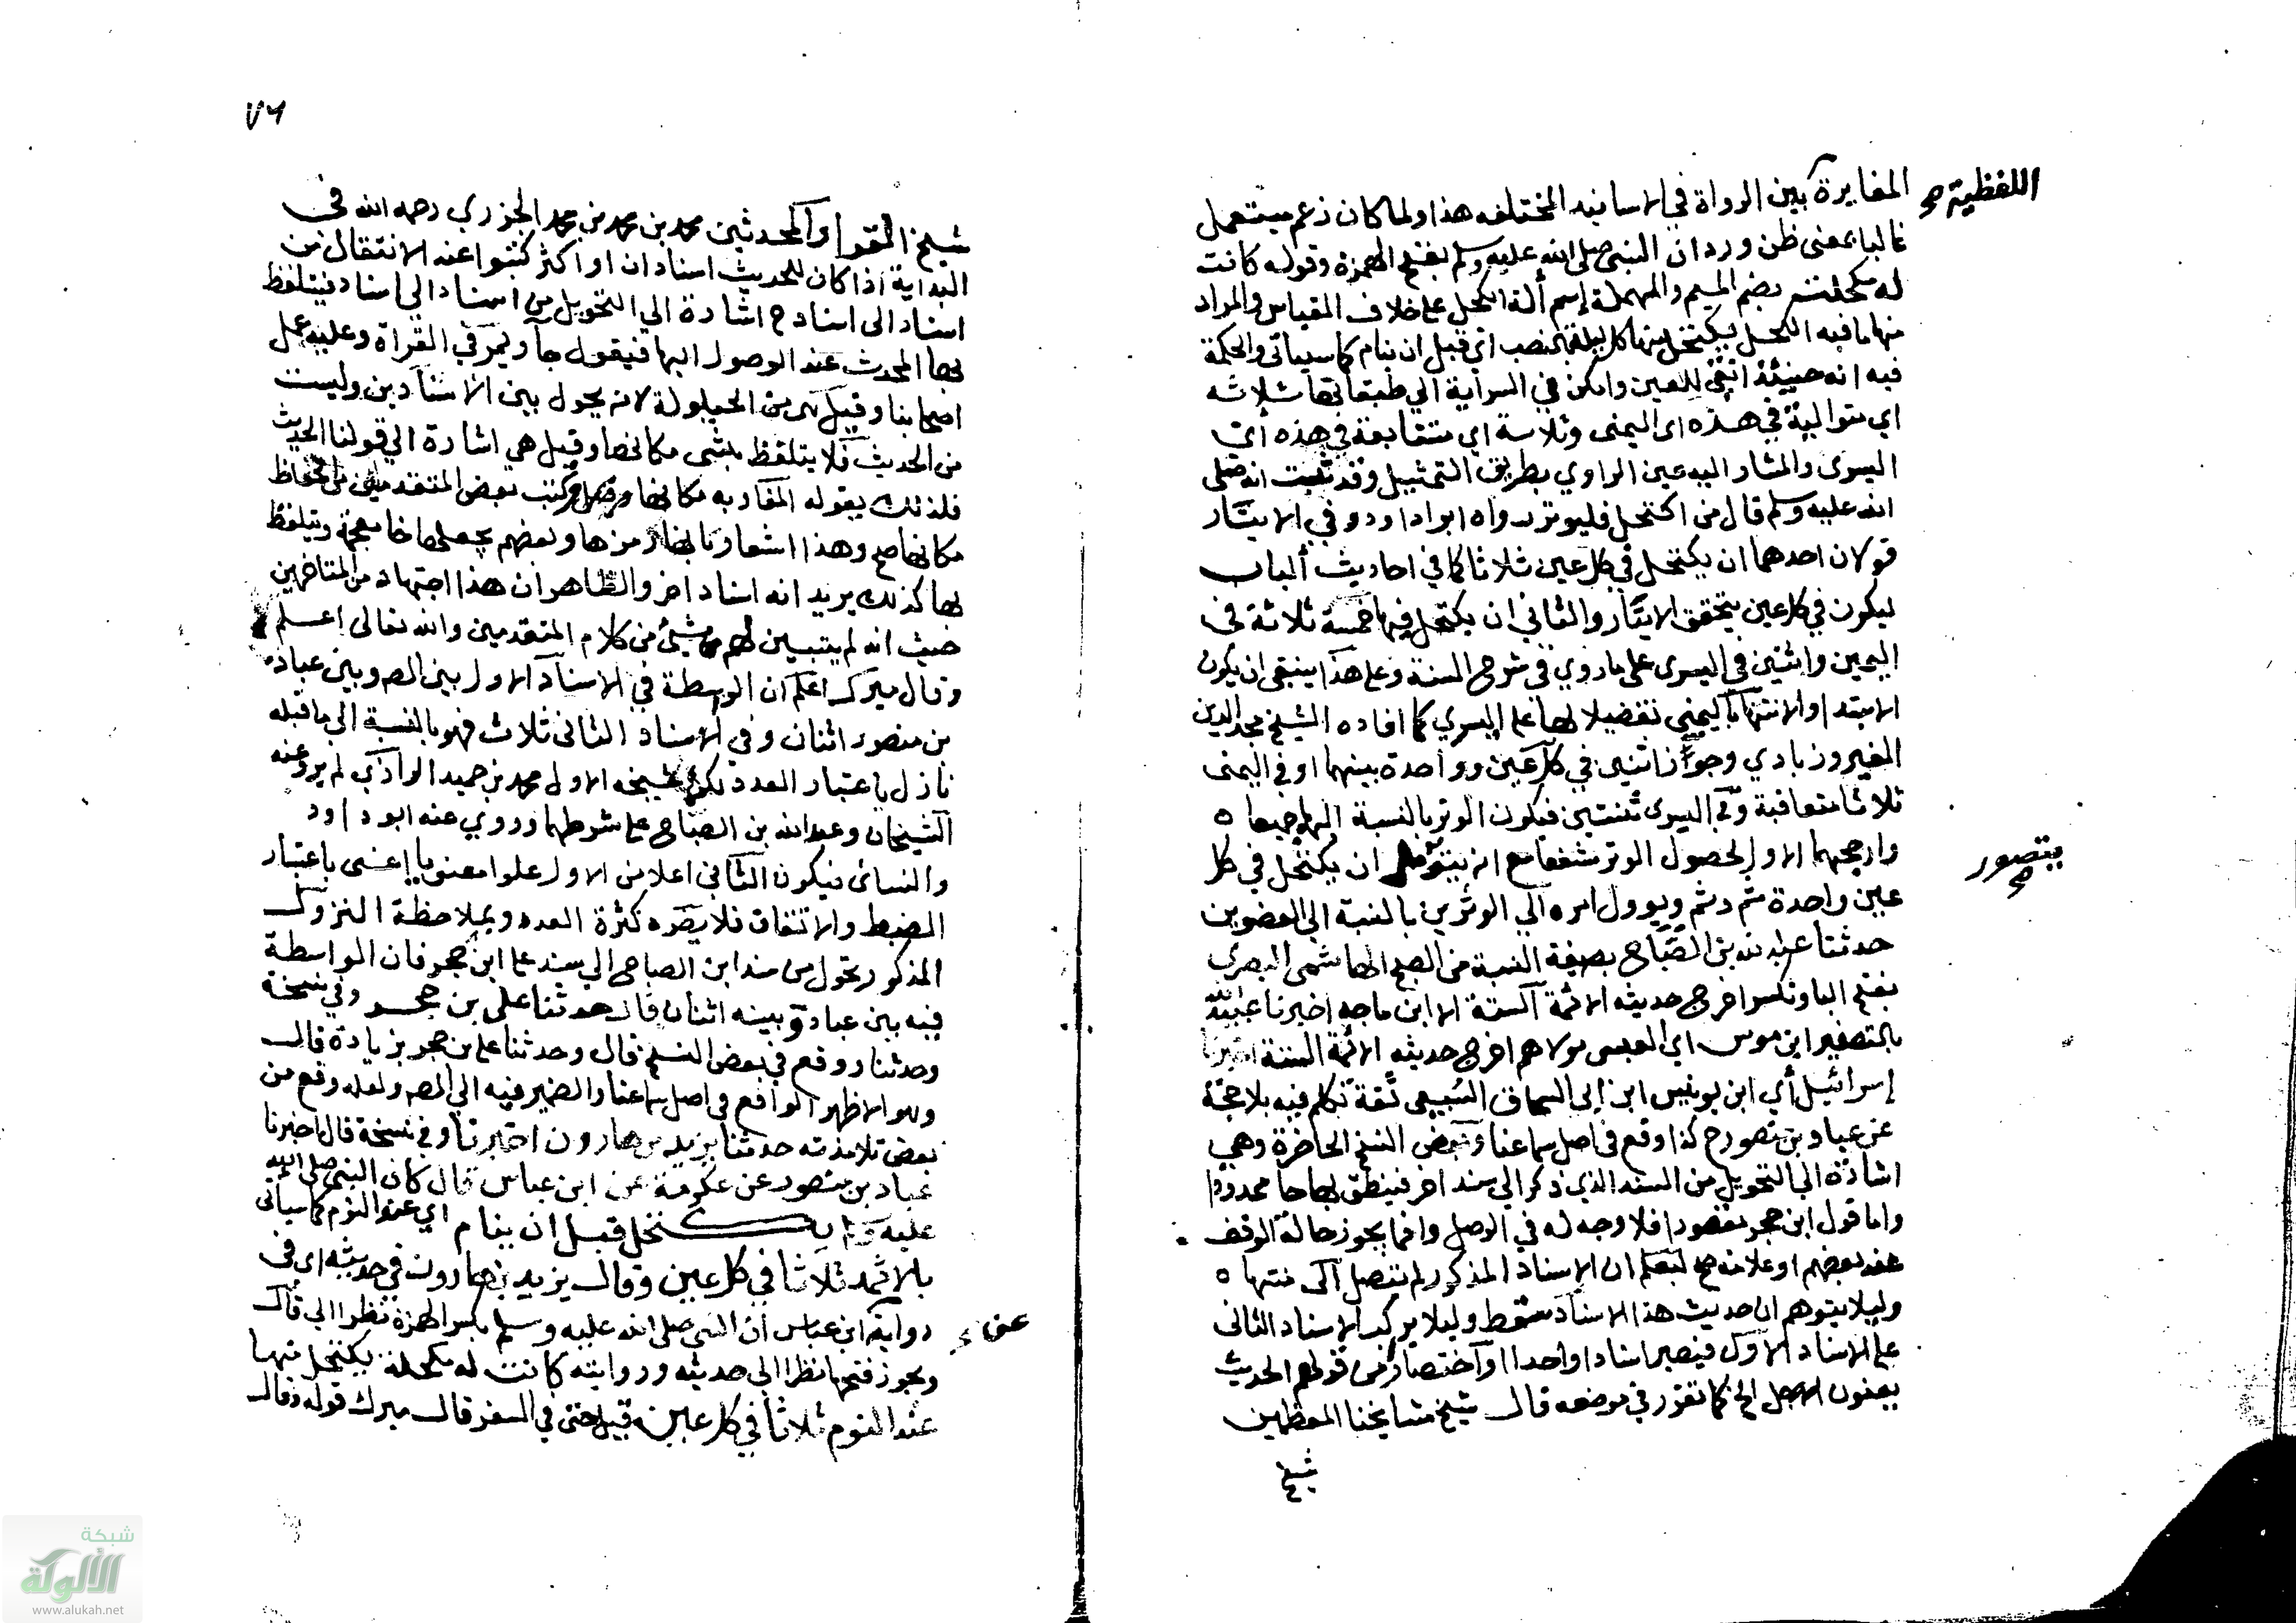 اللفظية صح
المغايرة بين الرواة في الاسانيد المختلفه هذا ولما كان زعم يستعمل
غالبا بمعنى ظن ورد ان النبي صلى الله عليه وسلم بفتح الهمزة وقوله كانت
له مكحلة بضم الميم والمهملة إسم ألة الكحل على خلاف القياس والمراد
منها ما فيه الكحل يكتحل منها كل ليلة بالنصب اي قبل ان ينام كما سياتي والحكمة
فيه انه حينئذ ابقي للعين وامكن في السراية الي طبقاتها ثلاثه
اي متوالية في هذه اى اليمنى وثلاثة اي متتابعة في هذه أي
اليسرى والمشار اليه عين الراوي بطريق التمثيل وقد ثبت انه صلى
الله عليه وسلم قال من اكتحل فليوتر رواه ابوا داود وفي الايتار
قولان احدهما ان يكتحل في كل عين ثلاثا كما في احاديث ألباب
ليكون في كل عين يتحقق الايتار والثاني ان يكتحل فيهما خمسة ثلاثة في
اليمين واثنين في اليسرى على ما روي في شرح السنة وعلى هذا ينبغى ان يكون
الابتداء والانتهاء باليمنى تفضيلا لها على اليسري كما افاده الشيخ مجد الدين
الفيروزبادي وجواز اثنين في كل عين وواحدة بينهما او في اليمنى
ثلاثا متعاقبة وفي اليسرى ثنتين فيكون الوتر بالنسبة اليهما جميعا ه
وارجحهما الاول لحصول الوتر شفعا مع انه ان يكتحل في كل
يتصور صح
عين واحدة ثم وثم ويوول امره الي الوترين بالنسبة الي العضوين
حدثنا عبد الله بن الصباح بصيغة النسبة من الصبح الهاشمى البصري
بفتح البا وتكسر اخرج حديثه الائمة الستة الا ابن ماجه اخبرنا عبيد الله
بالتصغير ابن موسى اي العبسى مولاهم اخرج حديثه الائمة الستة اخبرنا
إسرائيل أي ابن يونيس ابن ابى اسحاق السبيعي ثقة تكلم فيه بلا حجة
عن عباد بن منصور ح كذا وقع في اصل سماعنا وبعض النسخ الحاضرة وهي
اشارة الي التحويل من السند الذي ذكر الي سند اخر فينطق بها حا ممدودا
واما قول ابن حجر مقصورا فلا وجه له في الوصل وانما يجوز حالة الوقف
عند بعضهم او علامة صح ليعلم ان الاسناد المذكور لم يتصل الى منتهاه
وليلا يتوهم ان حديث هذا الاسناد سقط وليلا يركب الاسناد الثاني
على الاسناد الاول فيصير اسنادا واحدا او اختصار من قولهم الحديث
يعنون الاصل الخ كما تقرر في موضعه قال شيخ مشايخنا المعظمين
شيخ
٧٦
شيخ القرا والمحدثين محمد بن محمد بن محمد الجزري رحمه الله في
البداية اذا كان للحديث اسنادان او اكثر كتبوا عند الانتقال من
اسناد الى اسناد ح اشارة الي التحويل من اسناد الي اسناد فيتلفظ
بها المحدث عند الوصول اليها فيقول حآ ويمر في القراة وعليه عمل
اصحابنا وقيل هي من الحيلولة لانه يحول بين الاسنادين وليست
من الحديث فلا يتلفظ بشى مكانها وقيل هي اشارة الي قولنا الحديث
فلذلك يقوله المغاربه مكانها وكتب بعض المتقدمين من الحفاظ
مكانها صح وهذا اشعار بانها رمزها وبعضهم يجعلها خا معجمة ويتلفظ
بها كذلك يريد انه اسناد اخر والظاهر ان هذا اجتهاد من المتاخرين
حيث انه لم يتبين لهم شئ من كلام المتقدمين والله تعالى اعلم
وقال ميرك اعلم ان الوسطة في الاسناد الاول بين المص وبين عباد
بن منصور اثنان وفي الاسناد الثاني ثلاث فهو بالنسبة الي ما قبله
نازل باعتبار العدد لكن شيخه الاول محمد بن حميد الرازي لم يرو عنه
الشيخان وعبد الله بن الصباح على شرطهما وروي عنه ابو داود
والنسائى فيكون الثاني اعلا من الاول علوا معنويا اعنى باعتبار
الضبط والاتفاق فلا يضره كثرة العدد وبملاحظة النزول
المذكور تحول من سند ابن الصباح الي سند على ابن حجر فان الواسطة
فيه بين عباد وبينه اثنان قال حدثنا على بن حجر وفي نسخة
وحدثنا ووقع في بعض النسخ قال وحدثنا على بن حجر بزيادة قال
وهو الاظهر الواقع في اصل سماعنا والضمير فيه الي المص ولعله وقع من
بعض تلامذته حدثنا يزيد بن هارون اخبرنا وفي نسخة قال اخبرنا
عباد بن منصور عن عكرمة عن ابن عباس قال كان النبي صلى الله
عليه وسلم يكتحل قبل ان ينام اي عند النوم كما سياتى
بالاثمد ثلاثا في كل عين وقال يزيد بن هارون في حديثه اى في
رواية ابن عباس ان النبى صلى الله عليه وسلم بكسر الهمزة نظرا الي قال
عن
ويجوز فتحها نظرا الي حديثه وروايته كانت له مكحلة يكتحل منها
عند النوم ثلاثا في كل عين قيل حتى في السفر قال ميرك قوله وقال
شبكة
الألوكة
www.alukah.net